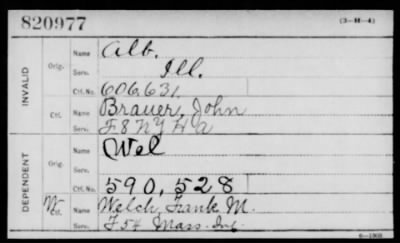 820977 (3-H-4)
INVALID
Orig. Name Alb.
Serv. Ill.
Ctf. No. 606,631
Ctf. Name Brauer, John
Serv. F 8 N Y H A
DEPENDENT
Orig. Name Wel
Serv.
Ctf. No. 590,528
Ctf. Name Welch, Frank M.
F 54 Mass. Inf.